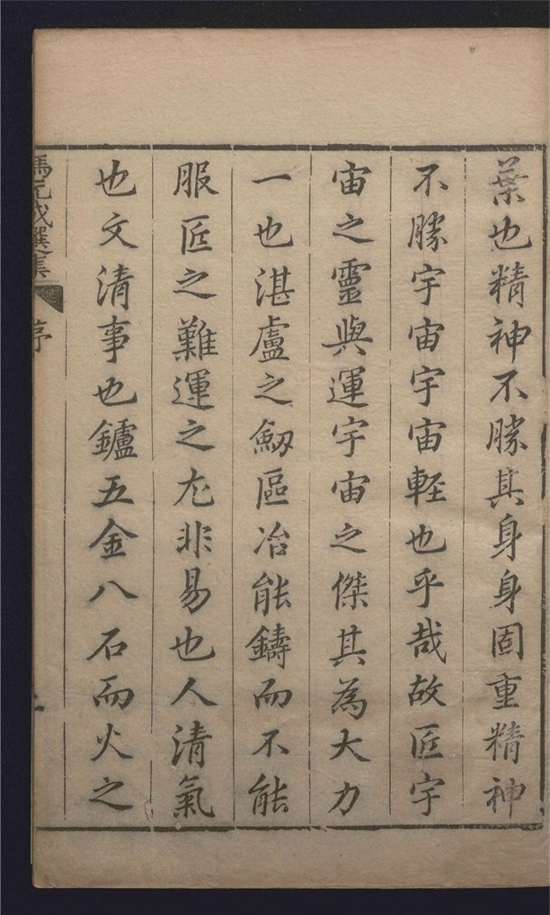 葉也精神不勝其身身固重精神
不勝宇宙宇宙輕也乎哉故匠宇
宙之靈與運宇宙之傑其為大力
一也湛盧之劒區冶能鑄而不能
服匠之難運之尤非易也人清氣
也文清事也鑪五金八石而火之
馮元成選集
序